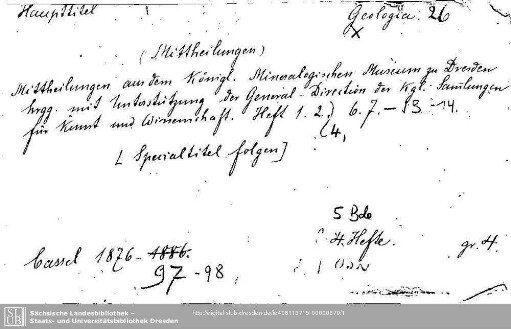 Haupttitel
Geologia. 26
x
(Mittheilungen)
Mittheilungen aus dem Königl. Mineralogischen Museum zu Dresden
hrgg. mit Unterstützung der General-Direction der Kgl. Samlungen
für Kunst und Wissenschaft. Heft 1. 2.) 6. 7. – 13. – 14.
(4,
[Specialtitel folgen]
5 Bde
4 Hefte.
gr. 4.
Cassel 1876 - 1886.
97 - 98,
SLUB
Sächsische Landesbibliothek –
Staats- und Universitätsbibliothek Dresden